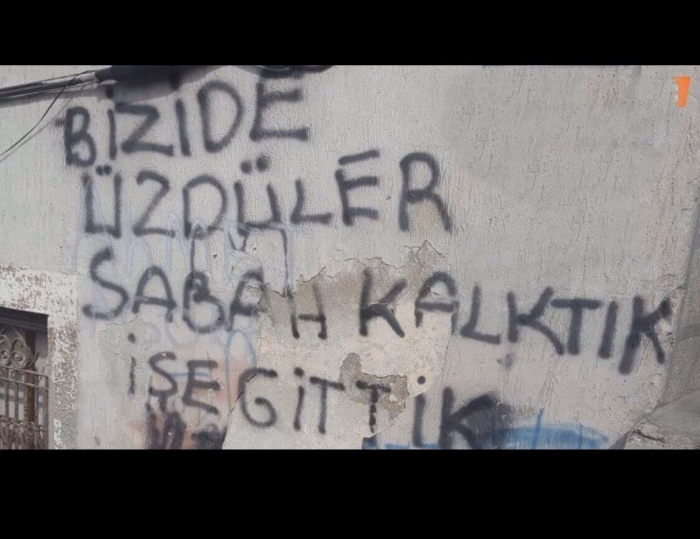 BİZİDE
ÜZDÜLER
SABAH KALKTIK
İŞE GİTTİK